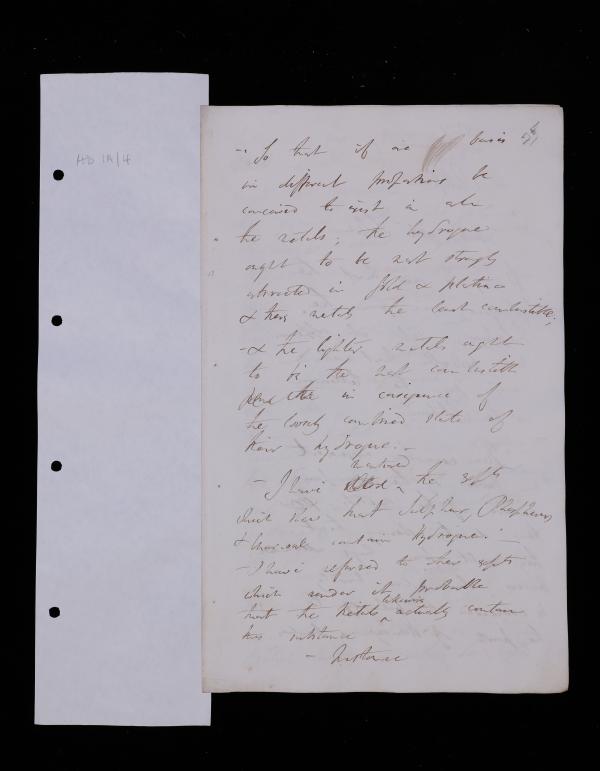 HD 1A/4
- So that if one basis
in different proportions be
conceived to exist in all
the metals; the hydrogene
ought to be most strongly
attracted in Gold & platina
& these metals the least combustible;
- & the lighter metals ought
to be the most combustible
in consequence of
the loosely combined state of
their hydrogene. -
mentioned
- I have the expts
which shew that Sulphur, Phosphorus
& charcoal contain Hydrogene. -
- I have referred to other expts
which render it probable
likewise
that the Metals actually contain
this substance
- Instance